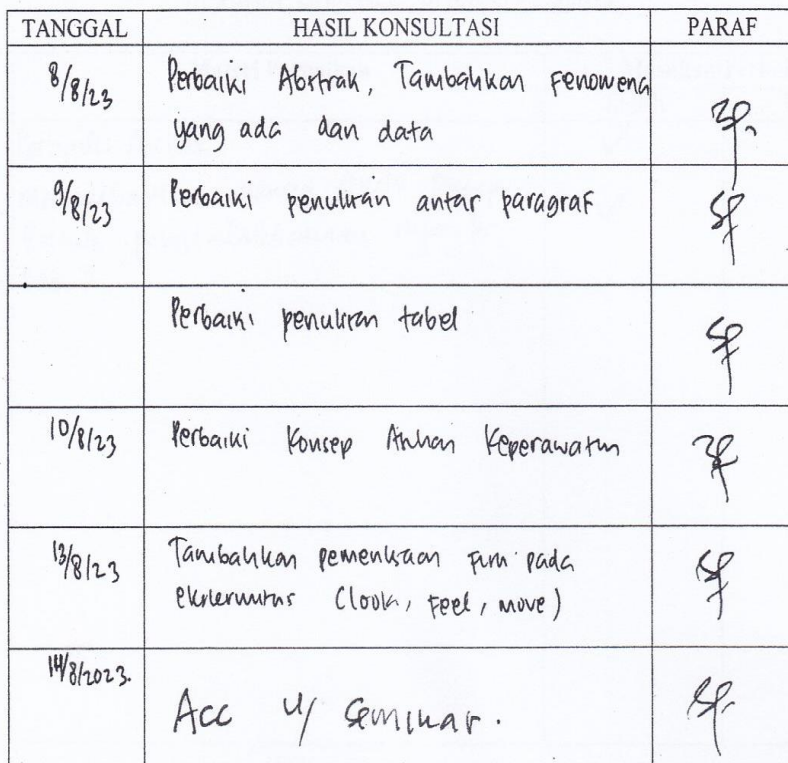 TANGGAL HASIL KONSULTASI PARAF
8/8/23 Perbaiki Abstrak, Tambahkan Fenomena
yang ada dan data
9/8/23 Perbaiki penulisan antar paragraf
Perbaiki penulisan tabel
10/8/23 Perbaiki Konsep Asuhan Keperawatan
13/8/23 Tambahkan pemeriksaan Fisik pada
ekstermitas (look, Feel, move)
14/8/2023. Acc u/ Seminar.